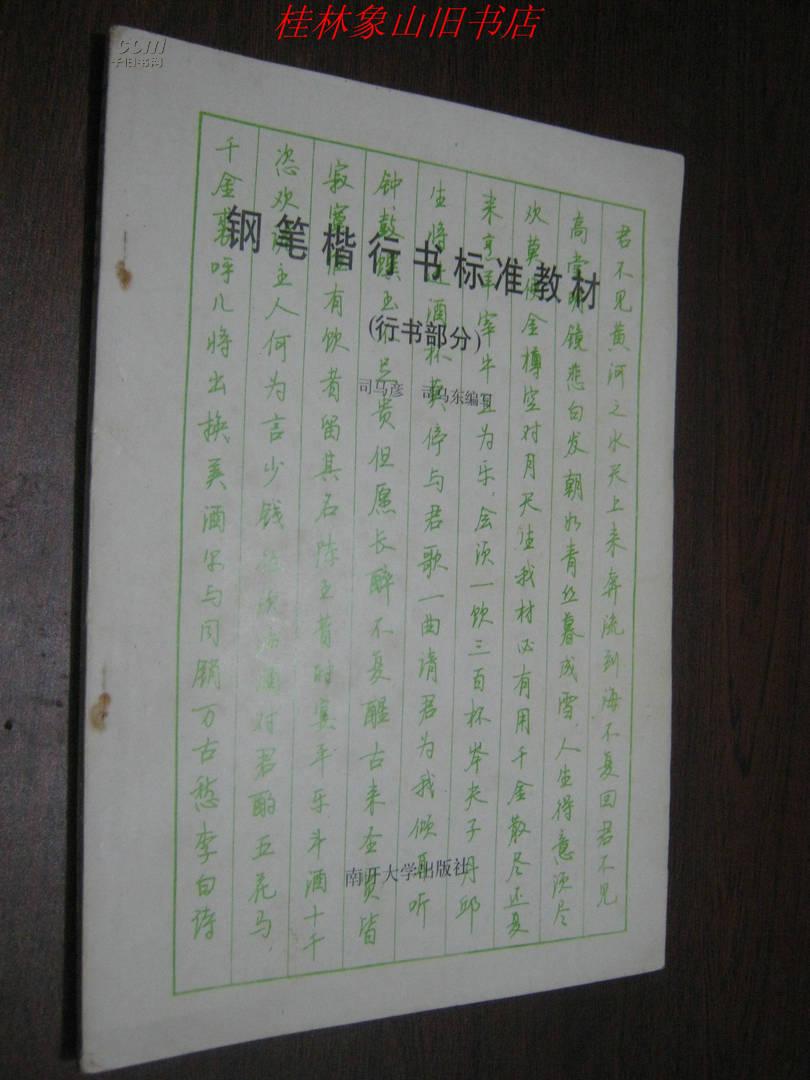 桂林象山旧书店
com
旧书网
钢笔楷行书标准教材
(行书部分)
司马彦 司马东编写
君不见黄河之水天上来奔流到海不复回君不见
高堂明镜悲白发朝如青丝暮成雪,人生得意须尽
欢莫使金樽空对月天生我材必有用千金散尽还复
来烹羊宰牛且为乐,会须一饮三百杯岑夫子丹邱
生将进酒杯莫停与君歌一曲请君为我倾耳听
钟鼓馔玉不足贵但愿长醉不复醒古来圣贤皆
寂寞惟有饮者留其名陈王昔时宴平乐斗酒十千
恣欢谑主人何为言少钱径须沽酒对君酌五花马
千金裘呼儿将出换美酒尔与同销万古愁李白诗
南开大学出版社